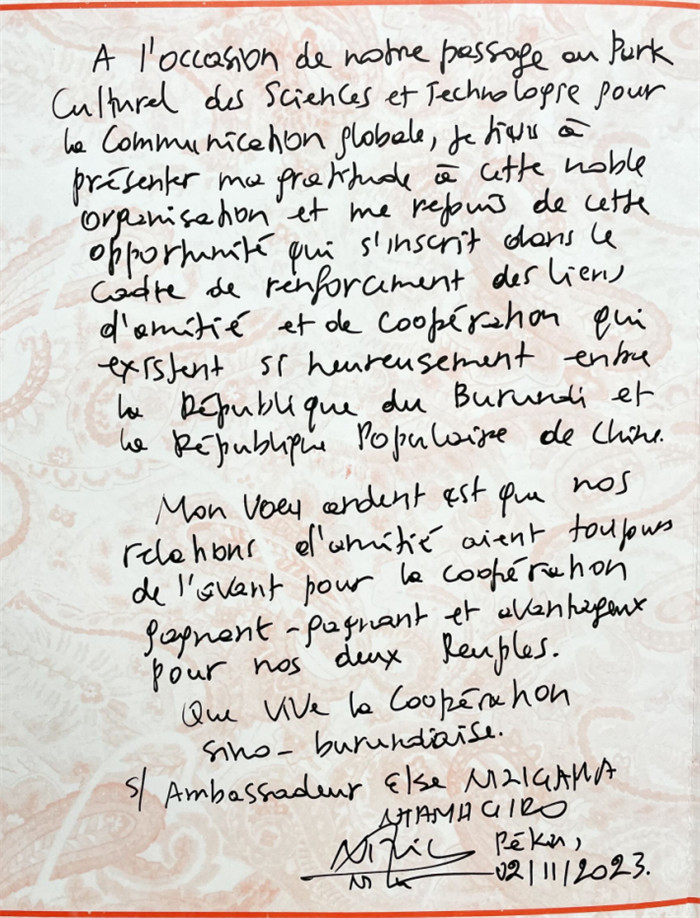 A l'occasion de notre passage au Park
Culturel des Sciences et Technologie pour
la Communication globale, je tiens à
présenter ma gratitude à cette noble
organisation et me rejouis de cette
opportunité qui s'inscrit dans le
cadre de renforcement des liens
d'amitié et de coopération qui
existent si heureusement entre
la République du Burundi et
la République Populaire de Chine.
Mon voeu ardent est que nos
relations d'amitié aient toujours
de l'avant pour la coopération
gagnant-gagnant et avantageux
pour nos deux Peuples.
Que vive la Coopération
sino-burundiaise.
s/ Ambassadeur Else NZIGAMA
NTAMAGIRO
Pékin,
02/11/2023.